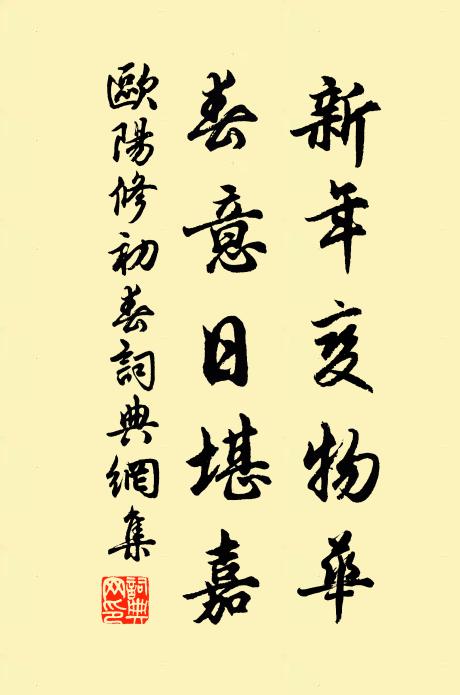 新年变物華
春意日堪嘉
歐陽修初春詞典網集
詞典網印